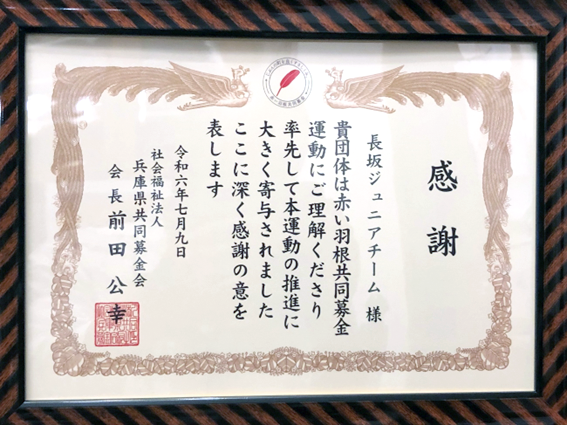 感謝
長坂ジュニアチーム 様
貴団体は赤い羽根共同募金
運動にご理解くださり
率先して本運動の推進に
大きく寄与されました
ここに深く感謝の意を
表します
令和六年七月九日
社会福祉法人
兵庫県共同募金会
会長 前田公幸